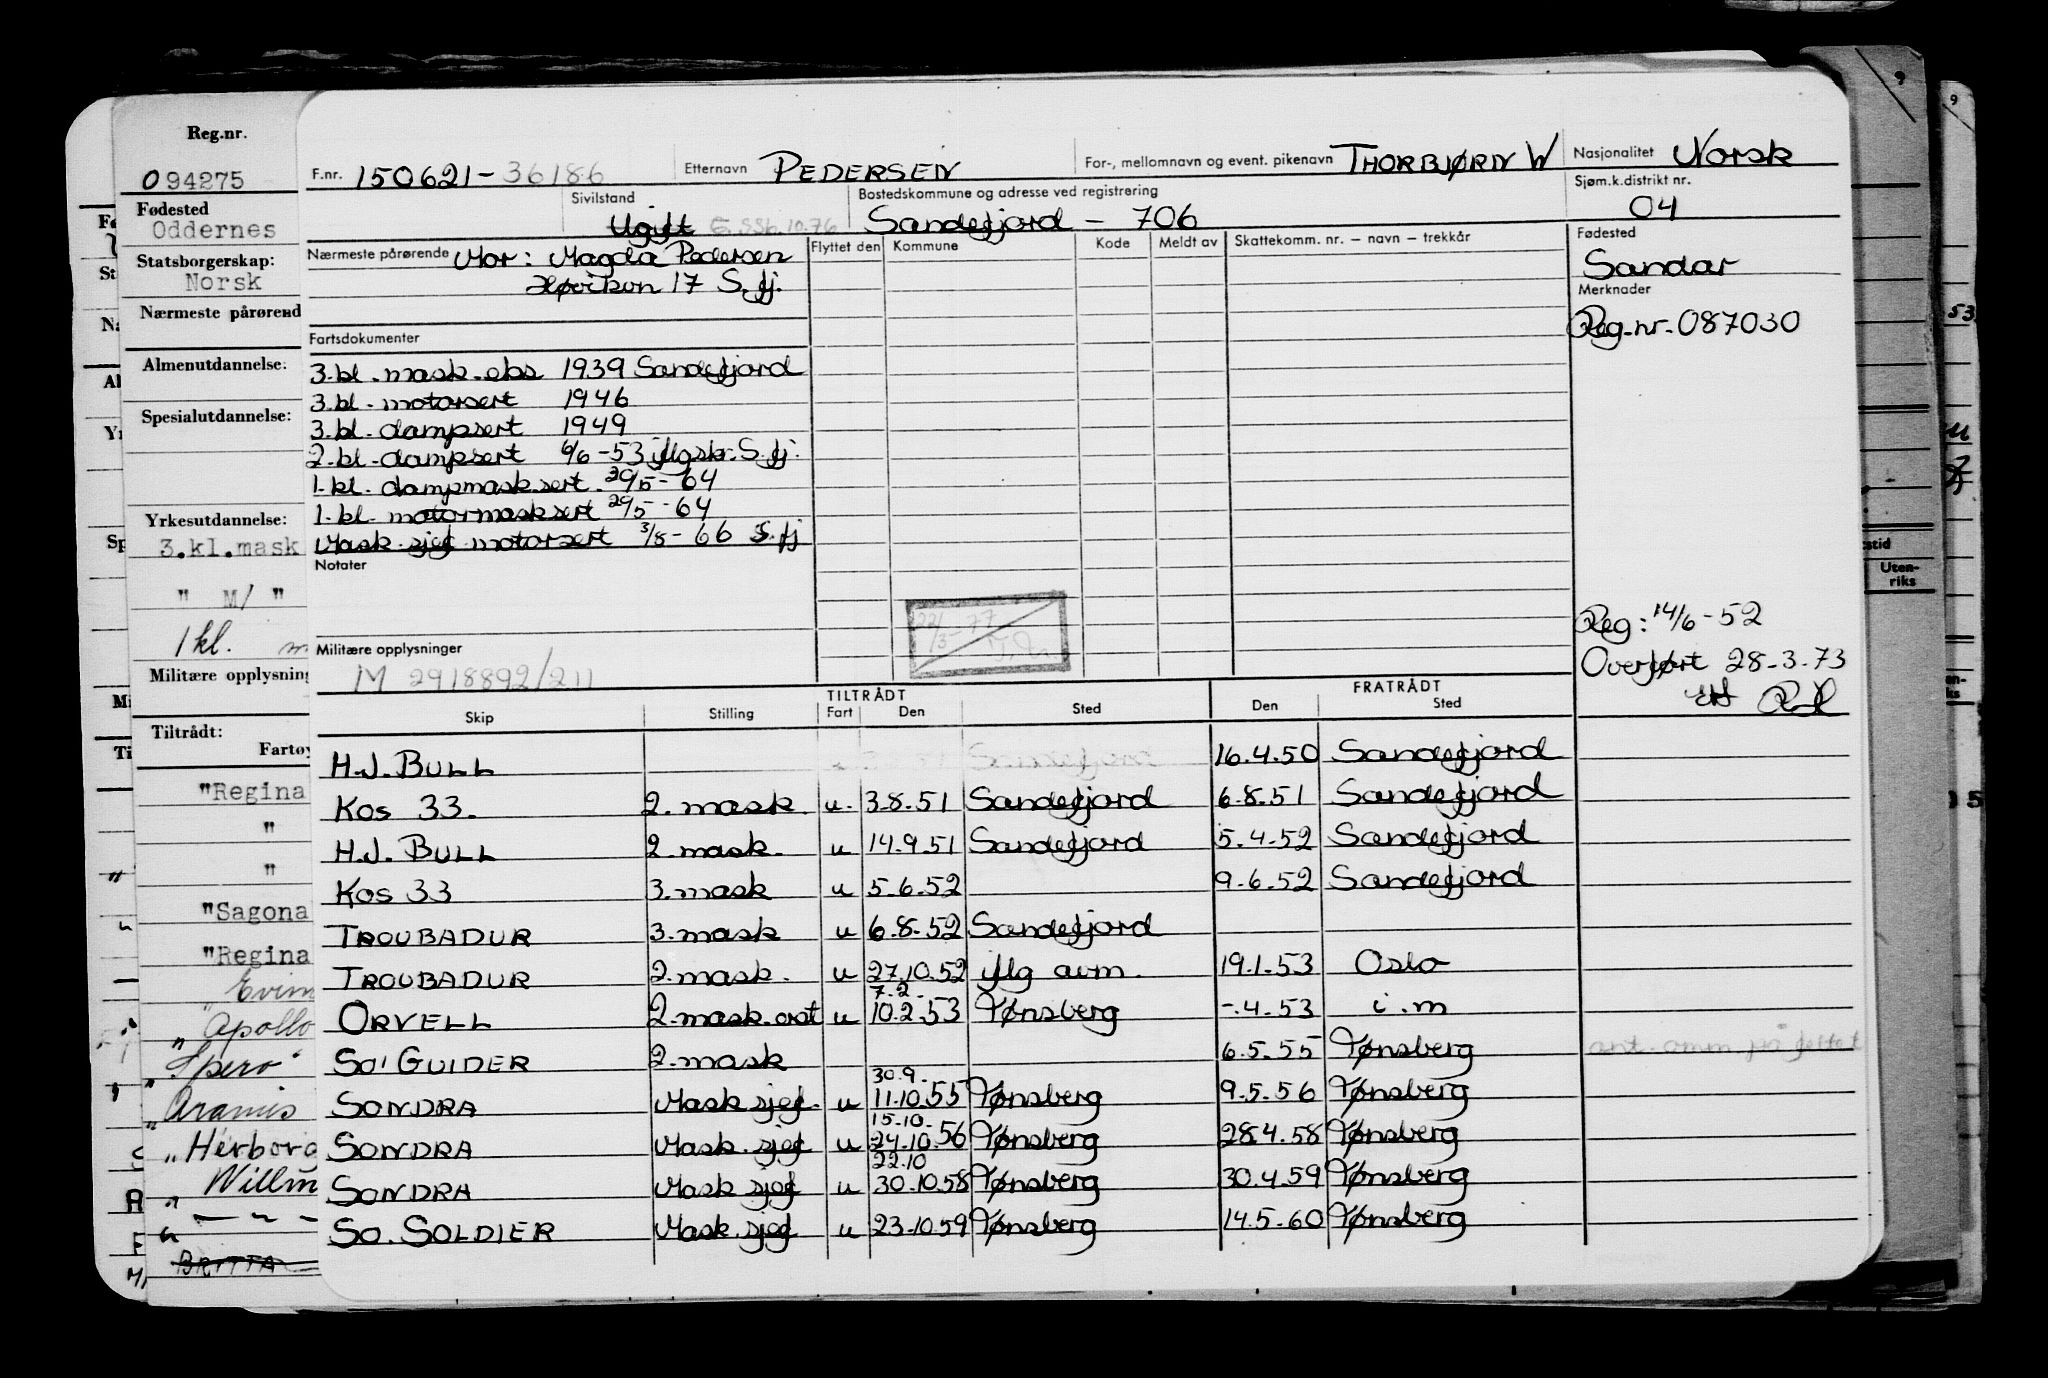 Reg.nr.
094275
Fødested
Oddernes
Statsborgerskap:
Norsk
Nærmeste pårørend
Almenutdannelse:
Spesialutdannelse:
Yrkesutdannelse:
3.kl.mask
" M/ "
1 kl. m
Militære opplysning
Tiltrådt:
Fartøy
"Regina
"
"
"Sagona
"Regina
" Evim
" Apollo
" Spero"
" Aramis
" Herborg
" Willm
BRITTA
F.nr. 150621-36186 Etternavn PEDERSEN For-, mellomnavn og event. pikenavn THORBJØRN W Nasjonalitet Norsk
Sivilstand Ugift Bostedskommune og adresse ved registrering Sandefjord - 706 Sjøm.k.distrikt nr. 04
Nærmeste pårørende Mor: Magda Pedersen
17 S.fj.
Flyttet den Kommune Kode Meldt av Skattekomm. nr. – navn – trekkår
Fødested
Sandar
Merknader
Reg.nr. 087030
Fartsdokumenter
3.kl.mask.eks 1939 Sandefjord
3.kl. motorsert 1946
3.kl. dampsert 1949
2.kl. dampsert 6/6-53 iflgsk. S.fj.
1.kl. dampmask.sert. 29/5-64
1.kl. motormasksert 29/5-64
Mask.sjef motorsert 3/8-66 S.fj
Notater
22/3-77
Militære opplysninger
M 2918892/211
Reg: 14/6-52
Overført 28-3-73
TILTRÅDT FRATRÅDT
Skip Stilling Fart Den Sted Den Sted
H.J. BULL Sandefjord 16.4.50 Sandefjord
KOS 33. 2.mask. u. 3.8.51 Sandefjord 6.8.51 Sandefjord
H.J. BULL 2.mask. u 14.9.51 Sandefjord 5.4.52 Sandefjord
KOS 33 3.mask u 5.6.52 9.6.52 Sandefjord
TROUBADUR 3.mask u 6.8.52 Sandefjord
TROUBADUR 2.mask. u 27.10.52 iflg avm. 19.1.53 Oslo
7.2.
ORVELL 2.mask.ass u 10.2.53 Tønsberg -.4.53 i.m
SO' GUIDER 2.mask 6.5.55 Tønsberg
30.9.
SONDRA Mask sjef. u 11.10.55 Tønsberg 9.5.56 Tønsberg
15.10.
SONDRA Mask.sjef u 24.10.56 Tønsberg 28.4.58 Tønsberg
22.10
SONDRA Mask sjef u 30.10.58 Tønsberg 30.4.59 Tønsberg
SO. SOLDIER Mask.sjef u 23.10.59 Tønsberg 14.5.60 Tønsberg
Uten-
riks